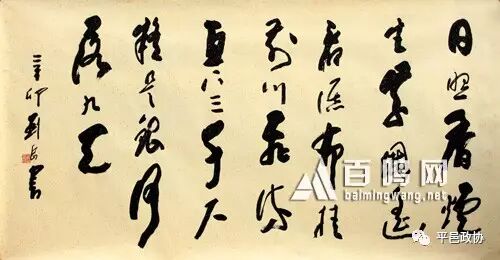 日照香爐
生紫烟遥
看瀑布挂
前川飛流
直下三千尺
疑是銀河
落九天
辛卯劉書
百鸣网
baimingwang.net
平邑政协